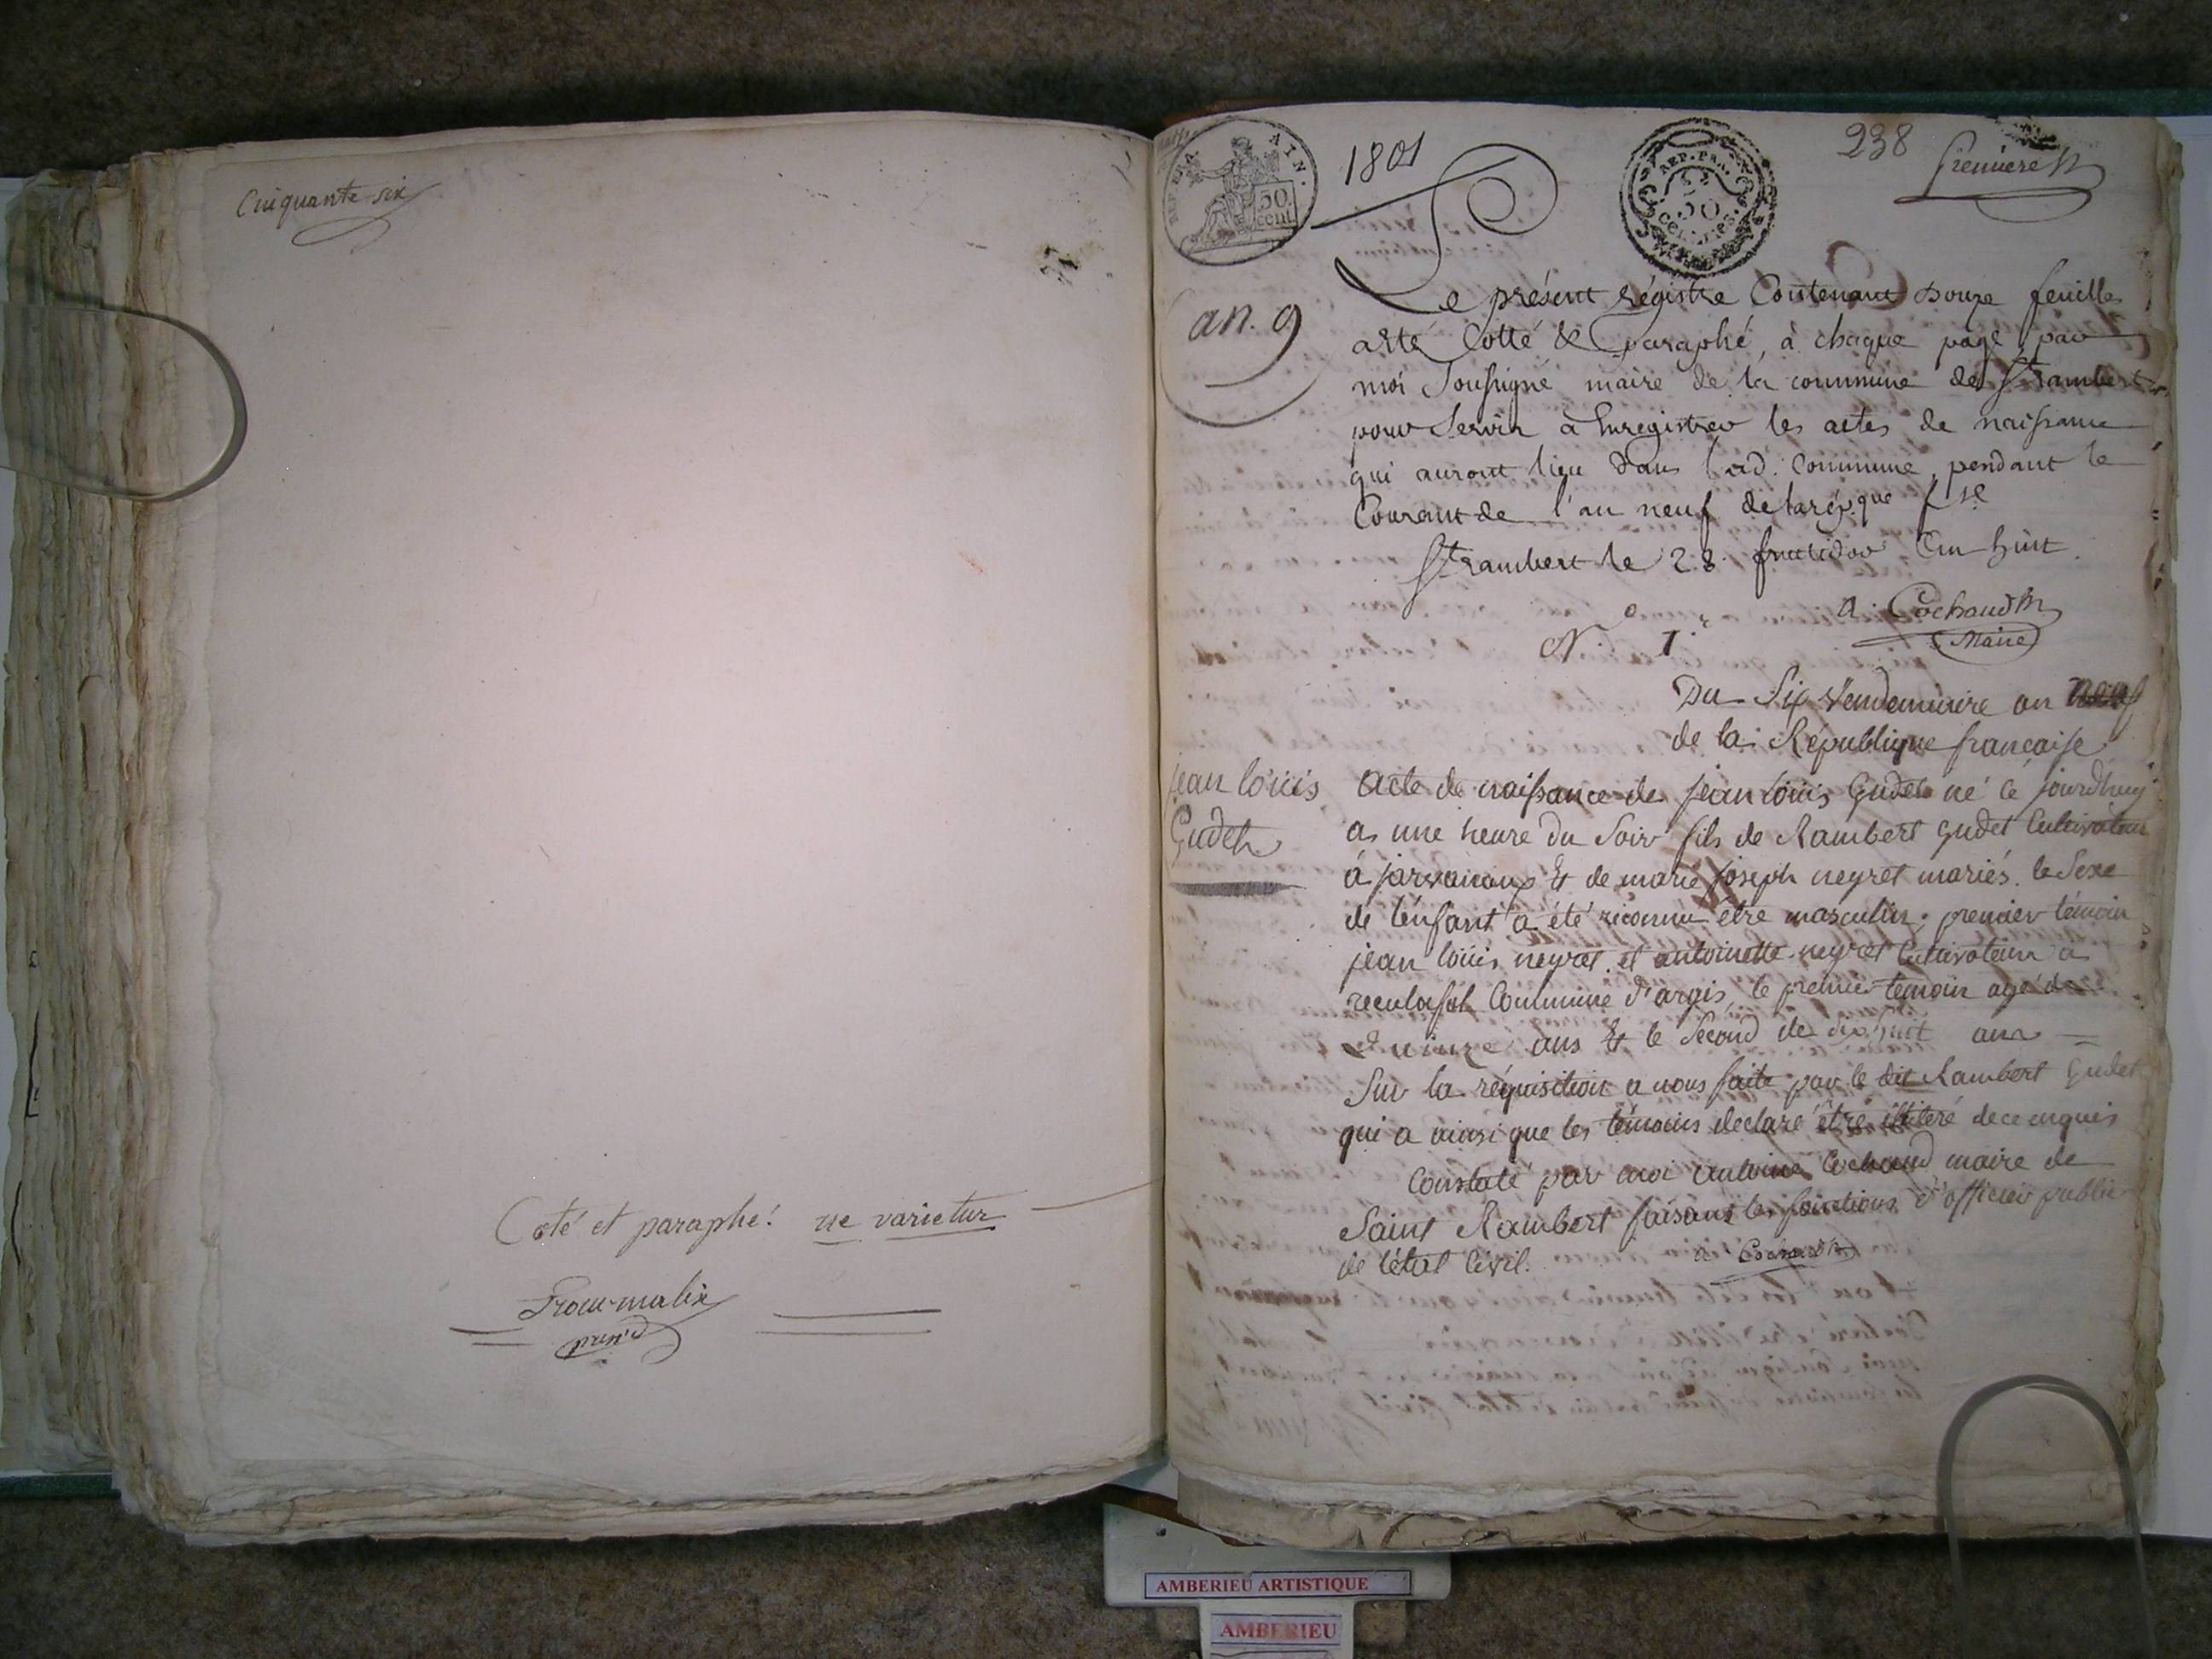 Cinquante six
Coté et paraphé: ne varietur
Prés.d
REP. FRA. AIN.
50
cent.
1801
REP. FRA.
50
238
Première
an. 9
Le présent régistre Contenant douze feuilles
asté Cotté & paraphé, à chaque page par
moi Soussigné maire de la commune de St rambert
pour Servir a Enregistrer les actes de naissance
qui auront lieu dans lad. Commune, pendant le
Courant de l'an neuf de la rép.que fse
St rambert le 28 fructidor an huit.
a. Cochaud
Maire
N.o 1.
Du Six Vendemiaire an neuf
de la République française
jean loüis
Gudet
Acte de naissance de jean loüis Gudet né ce jourdhuy
a une heure du Soir fils de Rambert Gudet Cultivateur
à jarvonoux & de marie joseph neyret mariés. le Sexe
de l'enfant a été reconnu être masculin; premier témoin
jean loüis neyret. et antoinette neyret Cultivateur a
reculafol Commune d'argis, le premier témoin agé de
quinze ans & le Second de dix huit ans
Sur la réquisition a nous faite par le dit Rambert Gudet
qui a ainsi que les témoins declaré être illiteré de ce enquis
Constaté par moi antoine Cochaud maire de
Saint Rambert faisant les fonctions d'officier public
de l'état Civil.
a Cochaud
AMBERIEU ARTISTIQUE
AMBERIEU